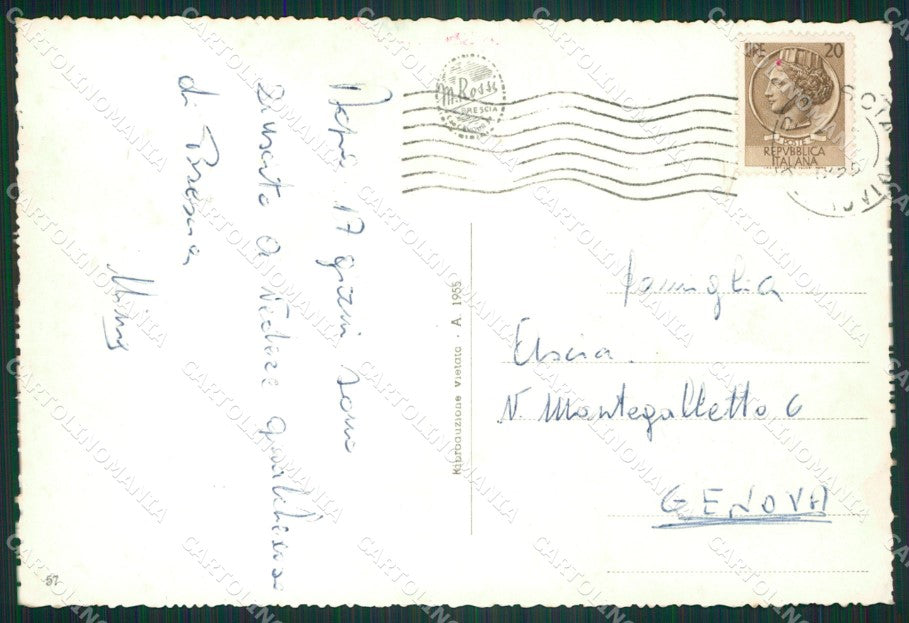 Dopo 17 giorni sono
riuscito a vedere qualchecosa
di Brescia
M. Rossi
BRESCIA
Riproduzione Vietata - A 1955
LIRE 20
POSTE
REPVBBLICA
ITALIANA
Famiglia
V. Montegalletto 6
GENOVA
57
CARTOLINOMANIA